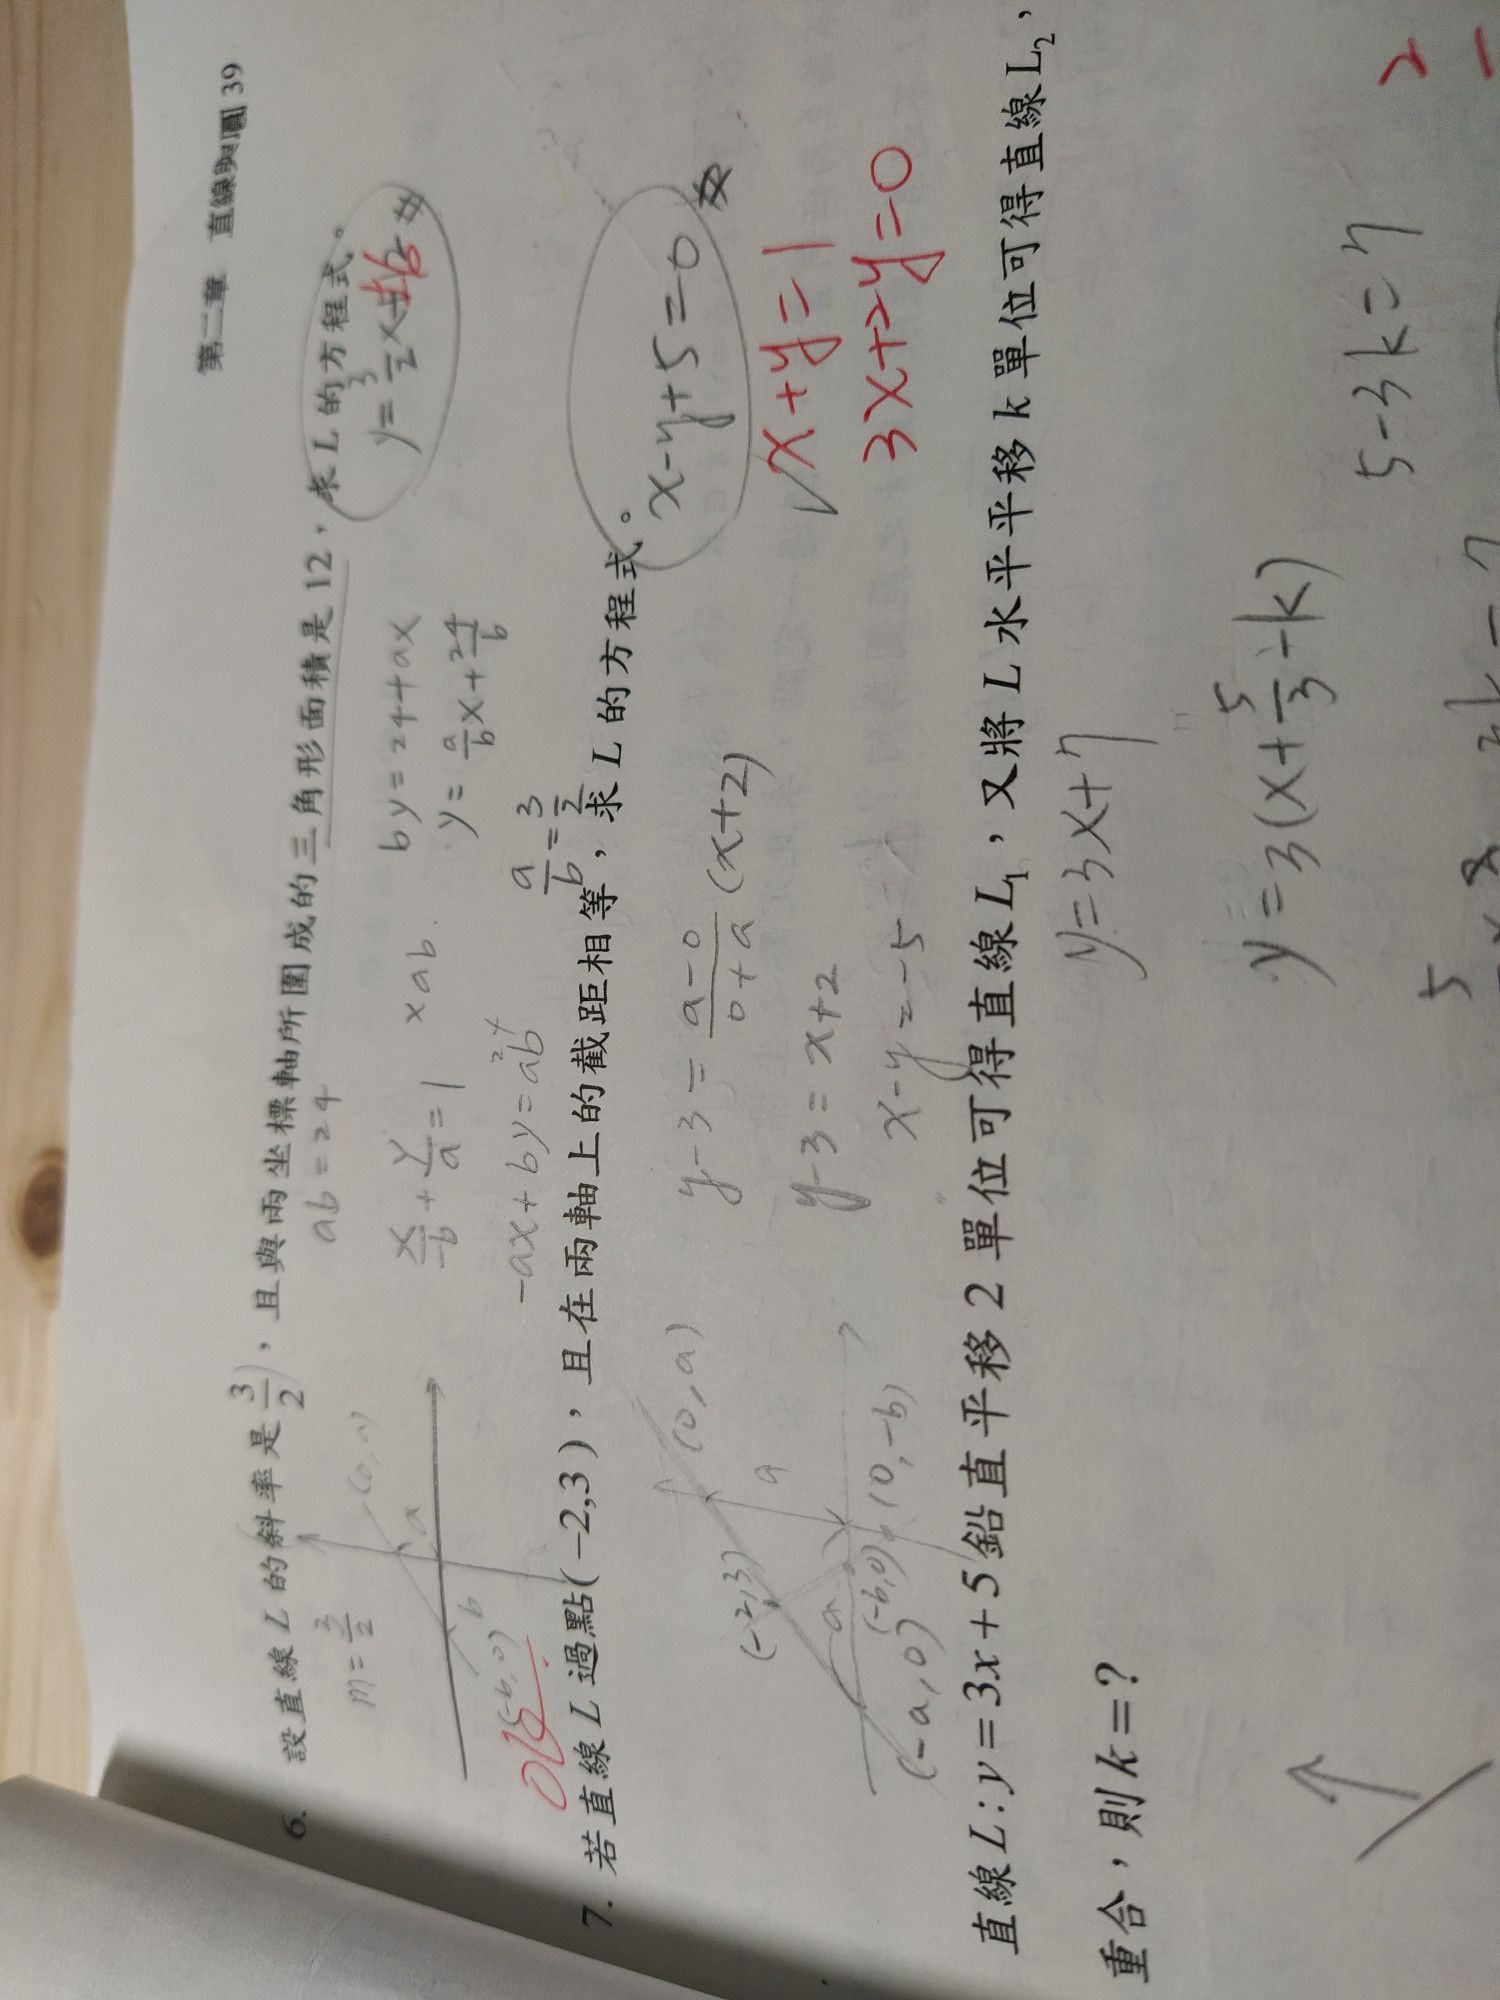 第二章 直線與圓 39
6. 設直線 L 的斜率是 3/2，且與兩坐標軸所圍成的三角形面積是 12，求 L 的方程式。
m = 3/2
ab = 24
y = 3/2 x ± 6
(0, a)
a
b
(-b, 0)
x/-b + y/a = 1
x ab
by = 24 + ax
y = a/b x + 24/b
-ax + by = ab
24
a/b = 3/2
7. 若直線 L 過點(−2,3)，且在兩軸上的截距相等，求 L 的方程式。
x - y + 5 = 0
(0, a)
y - 3 = a - 0 / 0 + a (x + 2)
(-2, 3)
a
a
y - 3 = x + 2
x + y = 1
(-b, 0)
(0, -b)
(-a, 0)
x - y = -5
3x + 2y = 0
直線 L : y = 3x + 5 鉛直平移 2 單位可得直線 L₁，又將 L 水平平移 k 單位可得直線 L₂，
重合，則 k = ?
y = 3x + 7
y = 3(x + 5/3 - k)
5 - 3k = 7